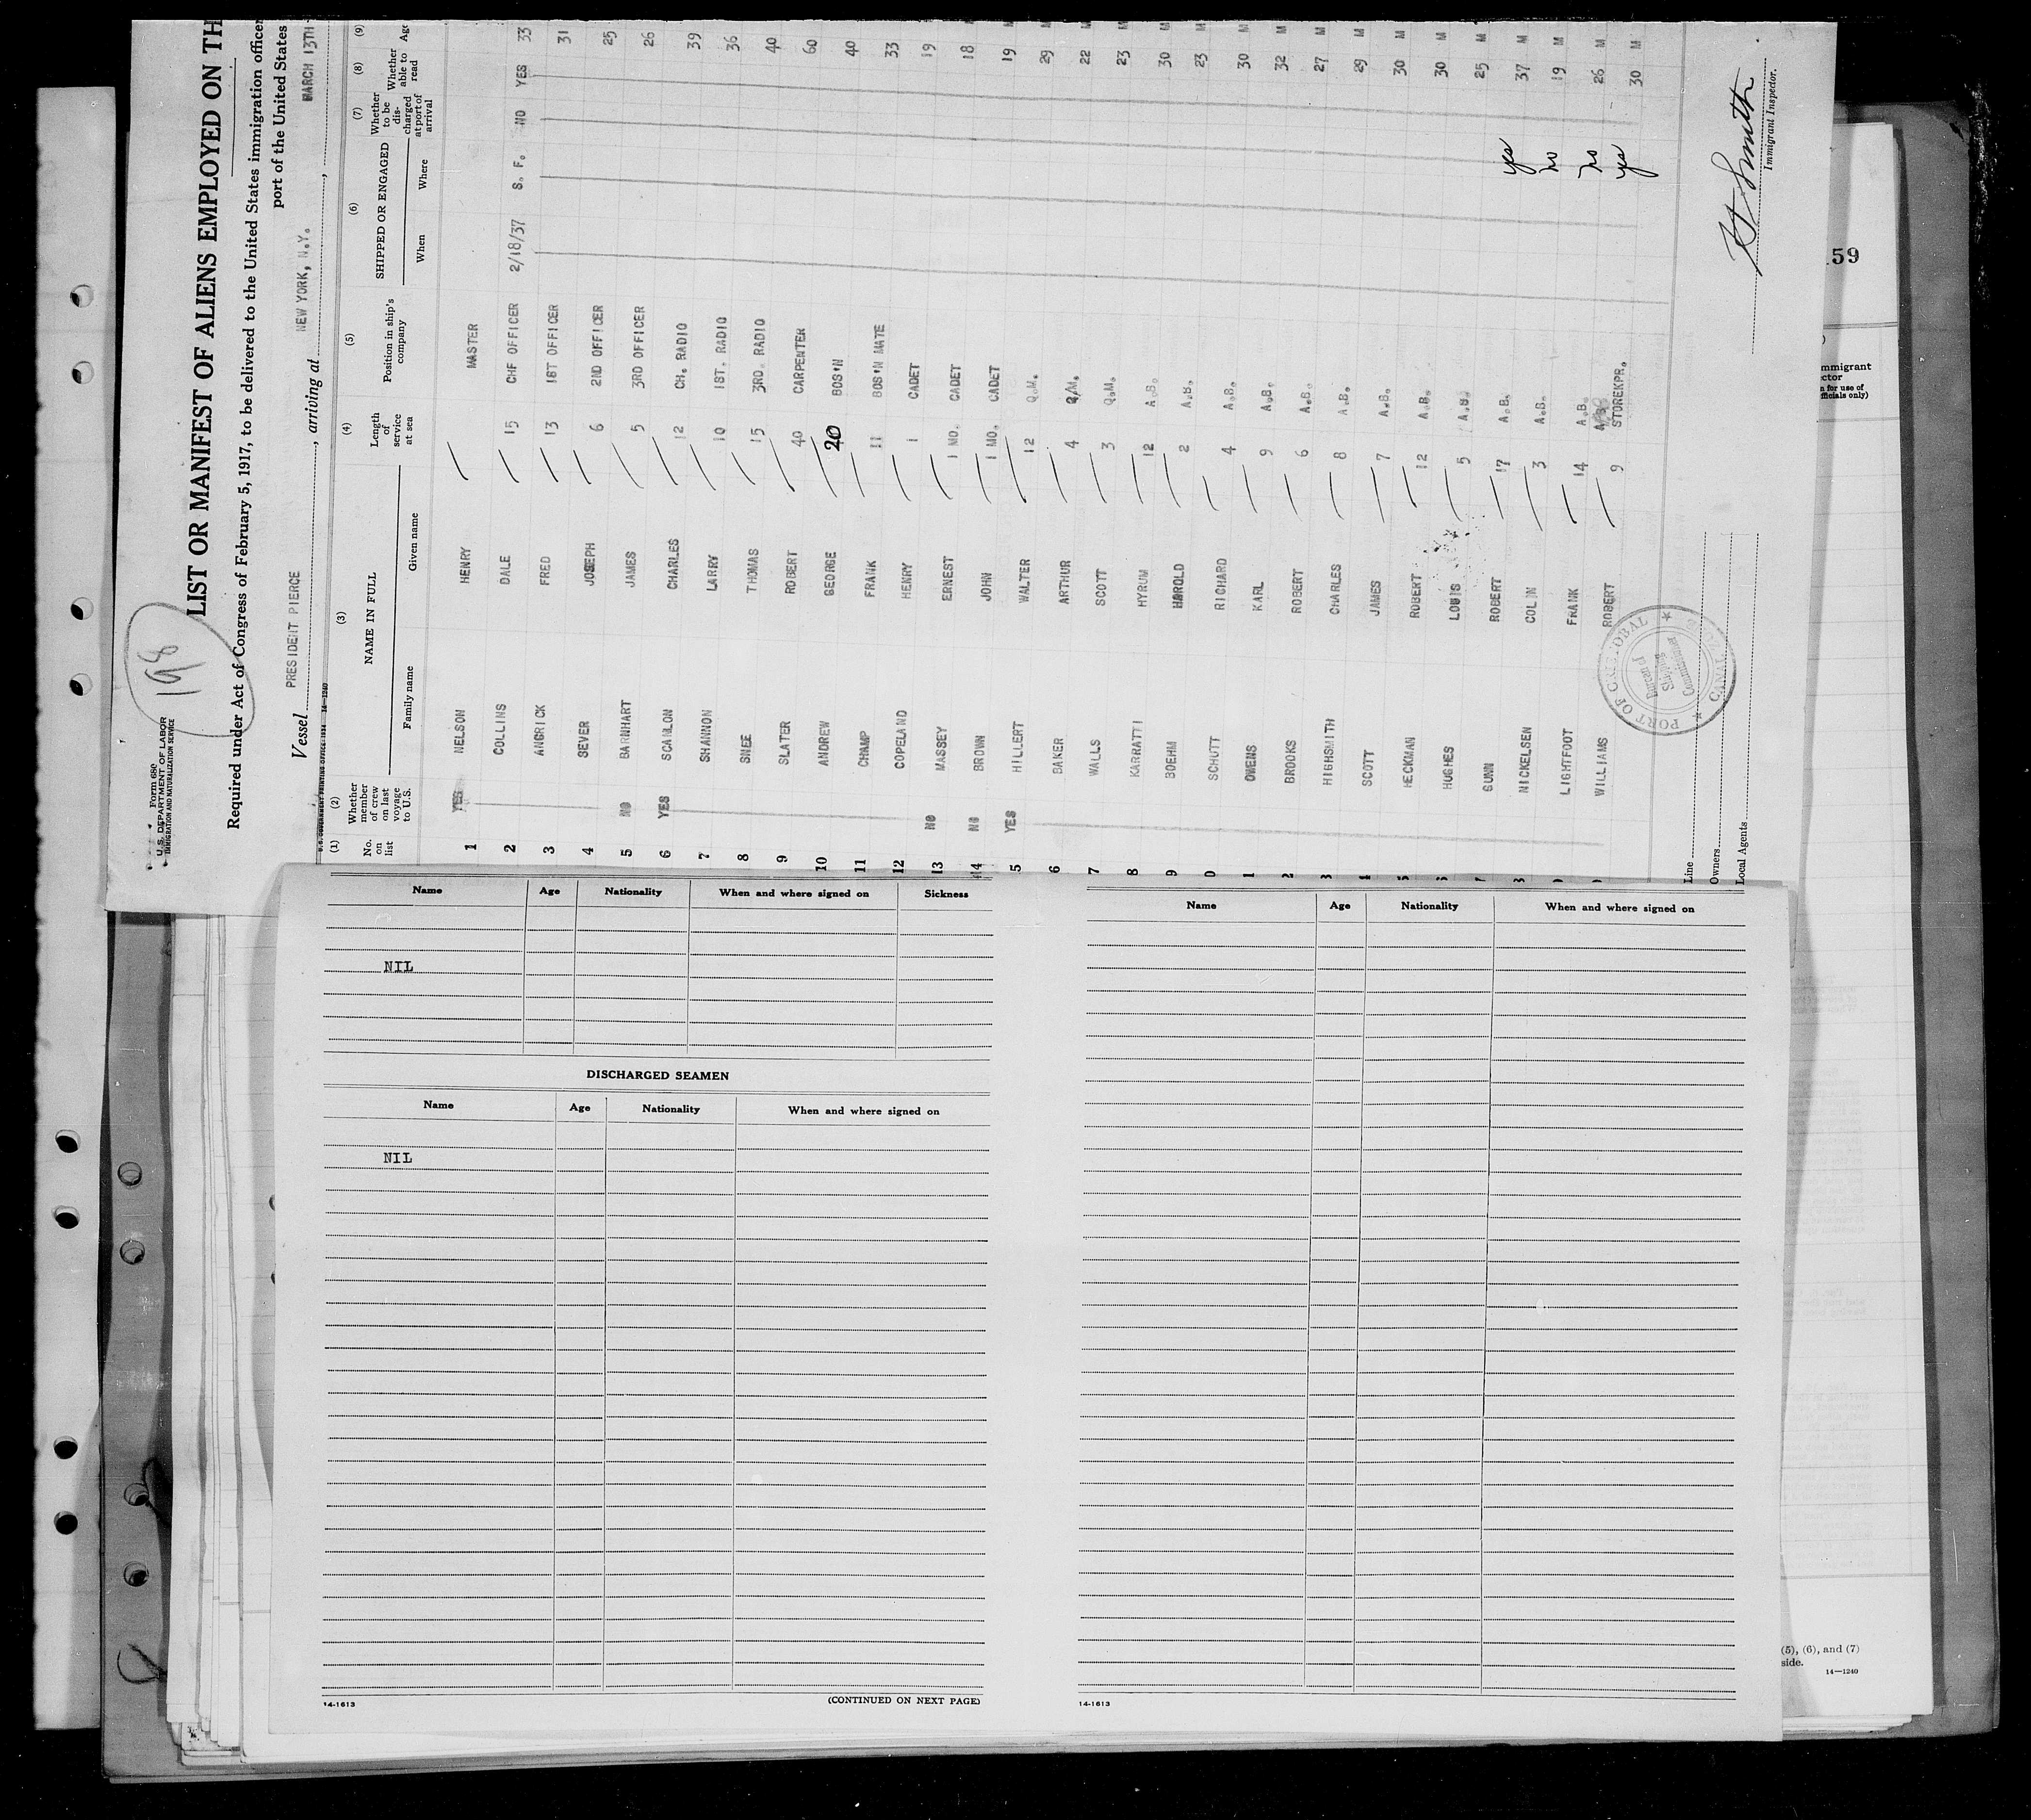 Form 680
U.S. DEPARTMENT OF LABOR
IMMIGRATION AND NATURALIZATION SERVICE
198
LIST OR MANIFEST OF ALIENS EMPLOYED ON TH
Required under Act of Congress of February 5, 1917, to be delivered to the United States immigration officer
port of the United States
Vessel PRESIDENT PIERCE, arriving at NEW YORK, N.Y., MARCH 13TH
U.S. GOVERNMENT PRINTING OFFICE: 1934 14—1240
(1) (2) (3) (4) (5) (6) (7) (8) (9)
No. on list
Whether member of crew on last voyage to U.S.
NAME IN FULL
Family name Given name
Length of service at sea
Position in ship's company
SHIPPED OR ENGAGED
When Where
Whether to be discharged at port of arrival
Whether able to read
Age
1 YES NELSON HENRY MASTER
2 COLLINS DALE 15 CHF OFFICER 2/18/37 S. F. NO YES 33
3 ANGRICK FRED 13 1ST OFFICER 31
4 SEVER JOSEPH 6 2ND OFFICER 25
5 NO BARNHART JAMES 5 3RD OFFICER 26
6 YES SCANLON CHARLES 12 CH. RADIO 39
7 SHANNON LARRY 10 1ST. RADIO 36
8 SNEE THOMAS 15 3RD. RADIO 40
9 SLATER ROBERT 40 CARPENTER 60
10 ANDREW GEORGE 20 BOS'N 40
11 CHAMP FRANK 11 BOS'N MATE 33
12 COPELAND HENRY 1 CADET 19
13 NO MASSEY ERNEST 1 MO. CADET 18
14 NO BROWN JOHN 1 MO. CADET 19
5 YES HILLERT WALTER 12 Q.M. 29 M
6 BAKER ARTHUR 4 Q/M. 22 M
7 WALLS SCOTT 3 Q.M. 23 M
8 KARRATTI HYRUM 12 A.B. 30 M
9 BOEHM HAROLD 2 A.B. 23 M
0 SCHUTT RICHARD 4 A.B. 30 M
1 OWENS KARL 9 A.B. 32 M
2 BROOKS ROBERT 6 A.B. 27 M
3 HIGHSMITH CHARLES 8 A.B. 29 M
SCOTT JAMES 7 A.B. 30 M
HECKMAN ROBERT 12 A.B. 30 M
HUGHES LOUIS 5 A.B. 25 M
GUNN ROBERT 17 A.B. yes 37 M
NICKELSEN COLIN 3 A.B. no 19 M
LIGHTFOOT FRANK 14 A.B. no 26 M
WILLIAMS ROBERT 9 STOREKPR. yes 30 M
PORT OF CRISTOBAL
CANAL ZONE
Bureau of Shipping Commissioner
Line
Owners
Local Agents
Smith
Immigrant Inspector.
Name Age Nationality When and where signed on Sickness
NIL
DISCHARGED SEAMEN
Name Age Nationality When and where signed on
NIL
14-1613 (CONTINUED ON NEXT PAGE)
Name Age Nationality When and where signed on
14-1613
59
mmigrant
ctor
n for use of
fficials only)
(5), (6), and (7)
side.
14—1240